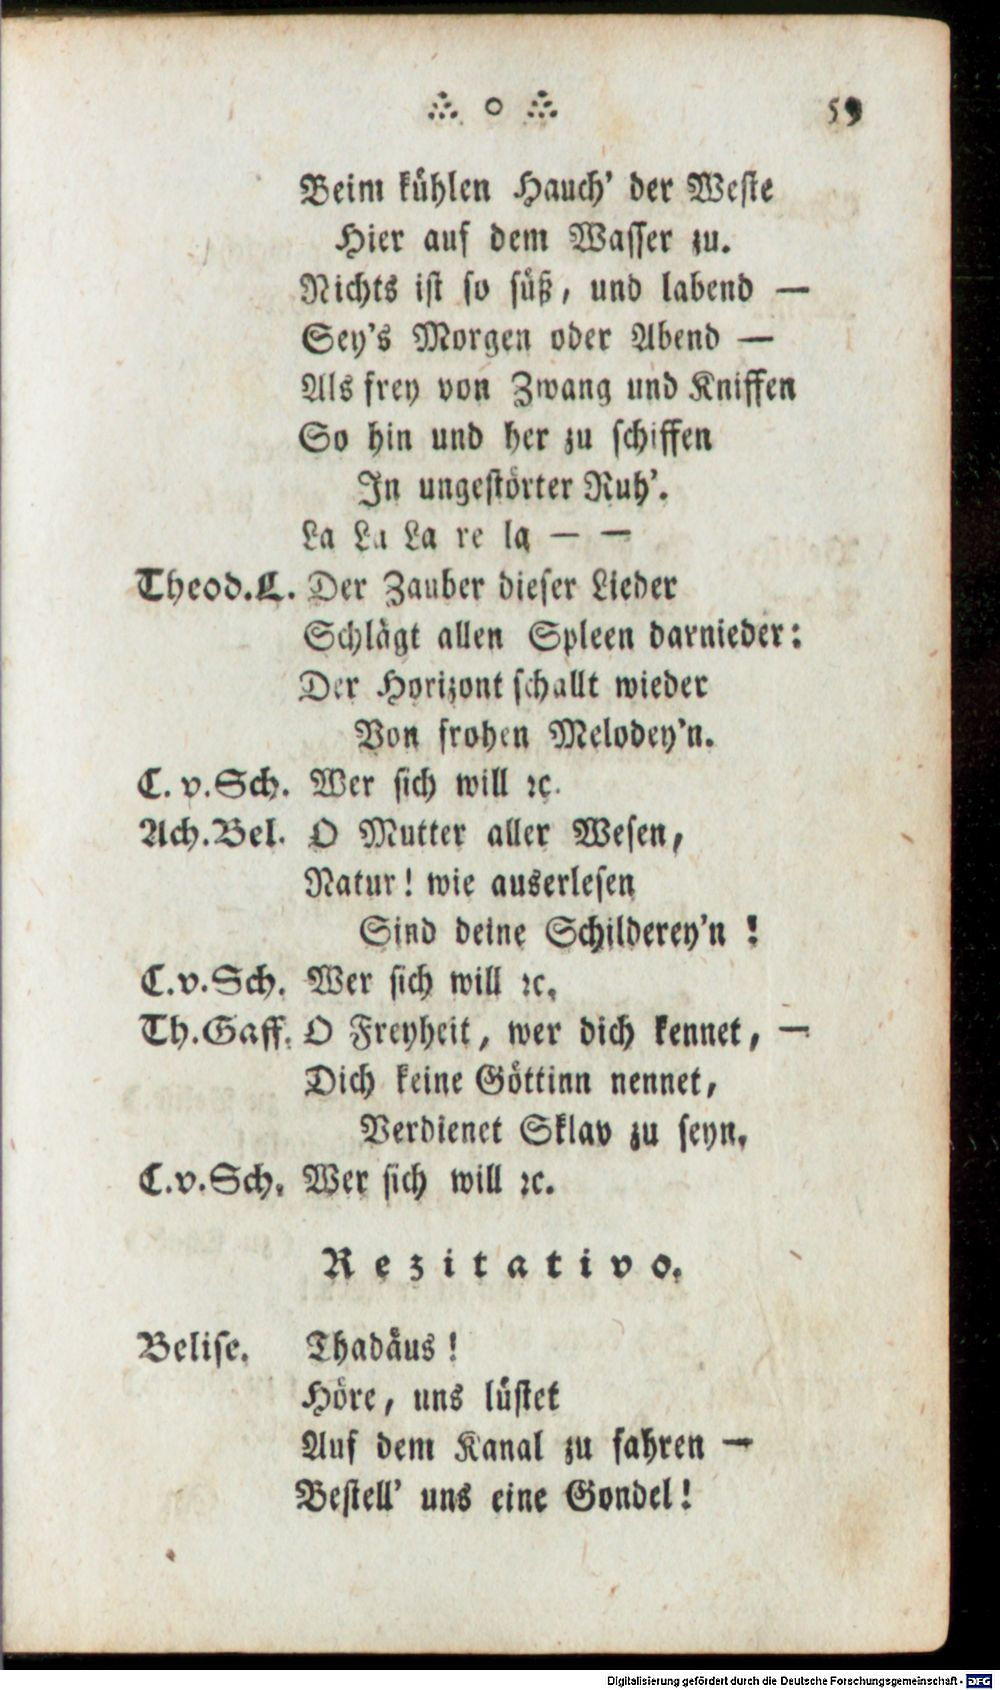 59
Beim kühlen Hauch' der Weste
Hier auf dem Wasser zu.
Nichts ist so süß, und labend —
Sey's Morgen oder Abend —
Als frey von Zwang und Kniffen
So hin und her zu schiffen
In ungestörter Ruh'.
La La La re la — —
Theod.L. Der Zauber dieser Lieder
Schlägt allen Spleen darnieder:
Der Horizont schallt wieder
Von frohen Melodey'n.
C. v. Sch. Wer sich will ꝛc.
Ach. Bel. O Mutter aller Wesen,
Natur! wie auserlesen
Sind deine Schilderey'n !
C.v.Sch. Wer sich will ꝛc.
Th.Gaff. O Freyheit, wer dich kennet, —
Dich keine Göttinn nennet,
Verdienet Sklav zu seyn.
C.v.Sch. Wer sich will ꝛc.
Rezitativo.
Belise. Thadäus !
Höre, uns lüstet
Auf dem Kanal zu fahren —
Bestell' uns eine Gondel!
Digitalisierung gefördert durch die Deutsche Forschungsgemeinschaft - DFG